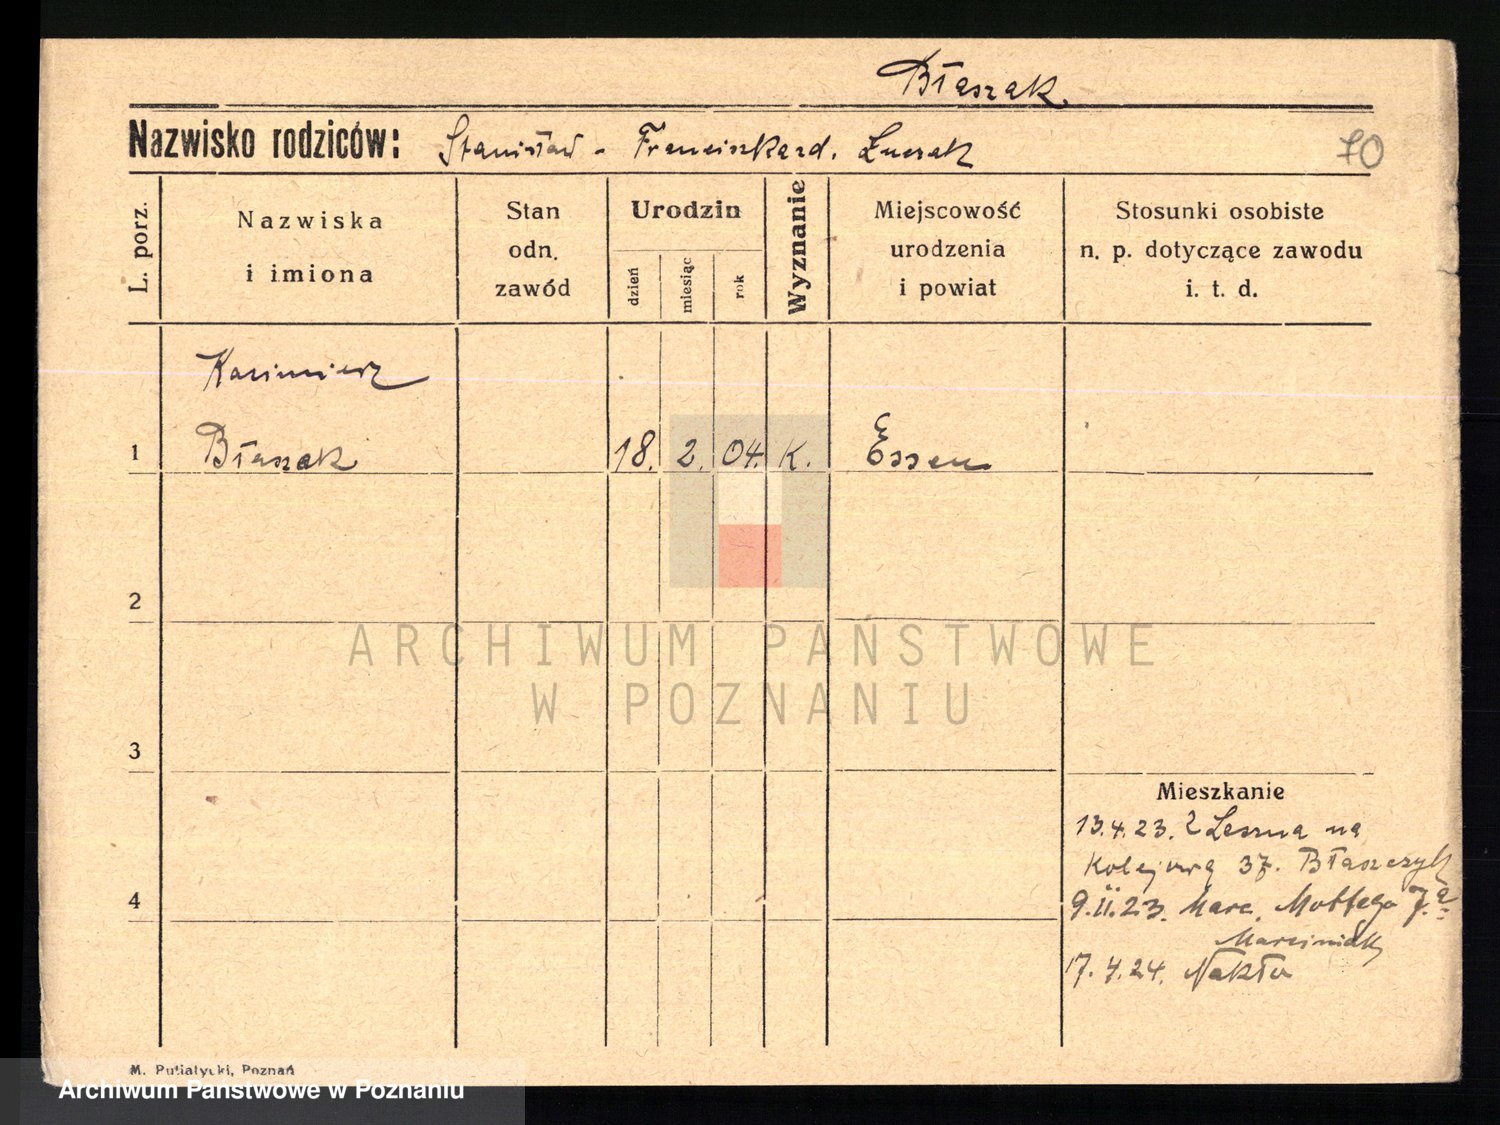 Błaszak
Nazwisko rodziców: Stanisław - Franciszka rd. Łuczak
70
L. porz.
Nazwiska
i imiona
Stan
odn.
zawód
Urodzin
dzień
miesiąc
rok
Wyznanie
Miejscowość
urodzenia
i powiat
Stosunki osobiste
n. p. dotyczące zawodu
i. t. d.
Kazimierz
1 Błaszak 18. 2. 04. K. Essen
2
ARCHIWUM PAŃSTWOWE
W POZNANIU
3
Mieszkanie
13.4.23. z Leszna na
Kolejową 37. Błaszczyk
4
9.11.23. Marc. Mottego 7
Marciniak
17.4.24. Nakło
M. Putiatycki, Poznań
Archiwum Państwowe w Poznaniu